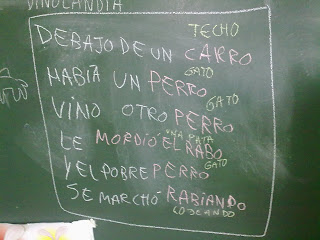 VINOLANDIA
TECHO
DEBAJO DE UN CARRO
GATO
HABÍA UN PERRO
GATO
VINO OTRO PERRO
UNA PATA
LE MORDIÓ EL RABO
GATO
Y EL POBRE PERRO
SE MARCHÓ RABIANDO
COJEANDO